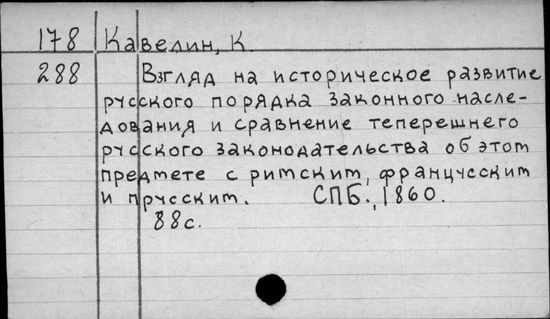 178 Кавелин, К.
288 Взгляд на историческое развитие
русского порядка законного насле-
дования и сравнение теперешнего
русского законодательства об этом
предмете с римским, французским
и прусским. СПБ., 1860.
88 с.